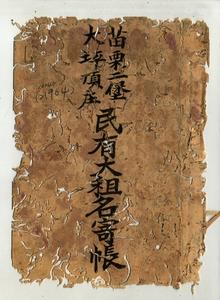 苗栗二堡
大坪頂庄
民有大租名寄帳
(1904)